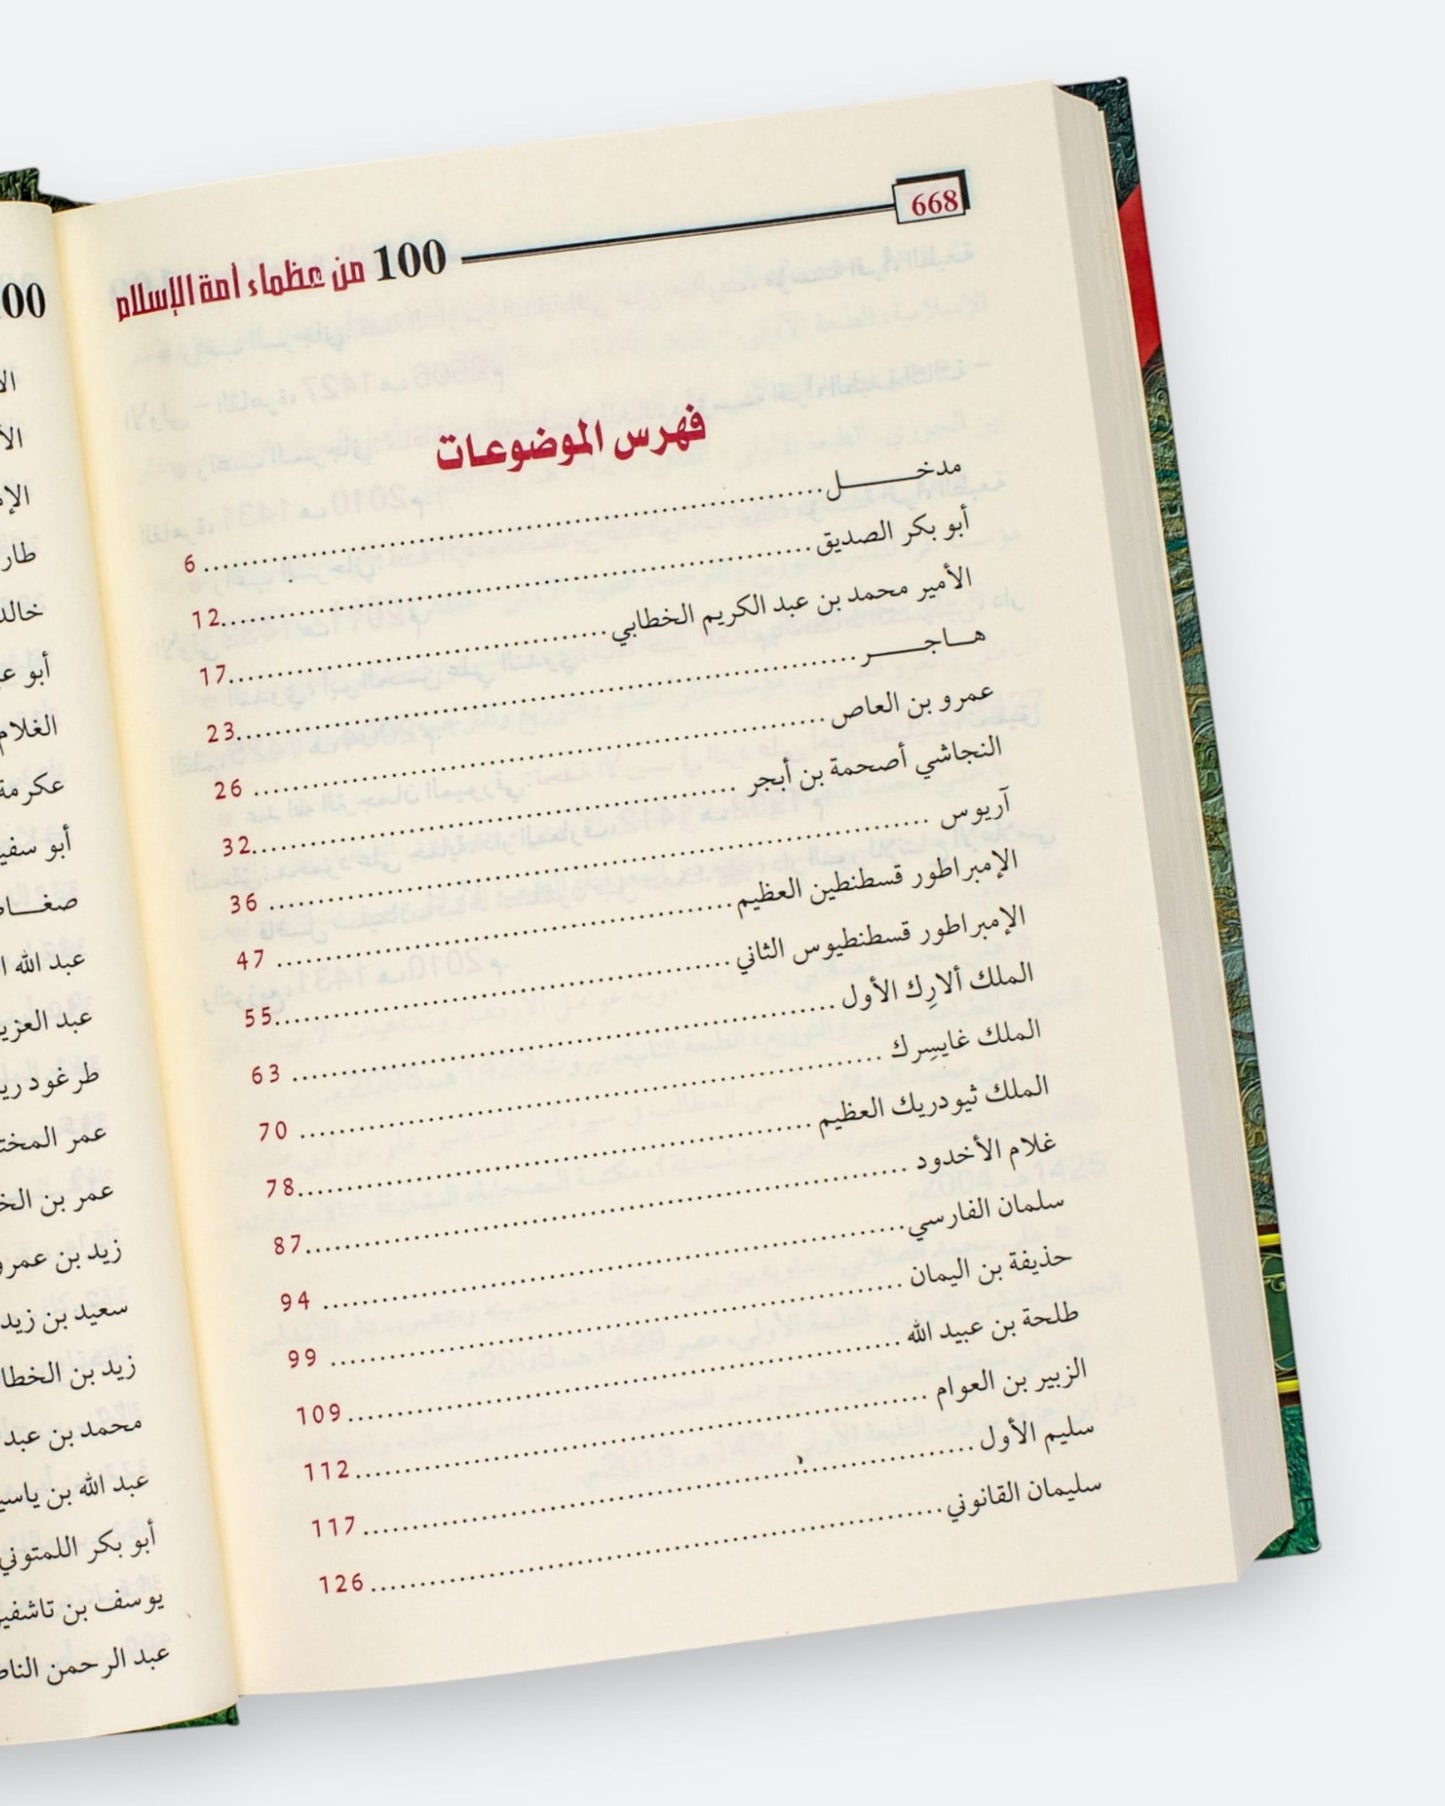 668
100 من عظماء أمة الإسلام
فهرس الموضوعات
مدخـــــــل 6
أبو بكر الصديق 12
الأمير محمد بن عبد الكريم الخطابي 17
هـــاجـــــــر 23
عمرو بن العاص 26
النجاشي أصحمة بن أبجر 32
آريوس 36
الإمبراطور قسطنطين العظيم 47
الإمبراطور قسطنطيوس الثاني 55
الملك ألارِك الأول 63
الملك غايسِرك 70
الملك ثيودريك العظيم 78
غلام الأخدود 87
سلمان الفارسي 94
حذيفة بن اليمان 99
طلحة بن عبيد الله 109
الزبير بن العوام 112
سليم الأول 117
سليمان القانوني 126
طار
خالد
أبو
الغلام
عكرمة
أبو
عبد الله
طرغود
عمر
عمر بن
زيد بن عمرو
سعيد بن زيد
زيد بن
محمد بن عبد
عبد الله بن
أبو بكر اللمتوني
يوسف بن
عبد الرحمن